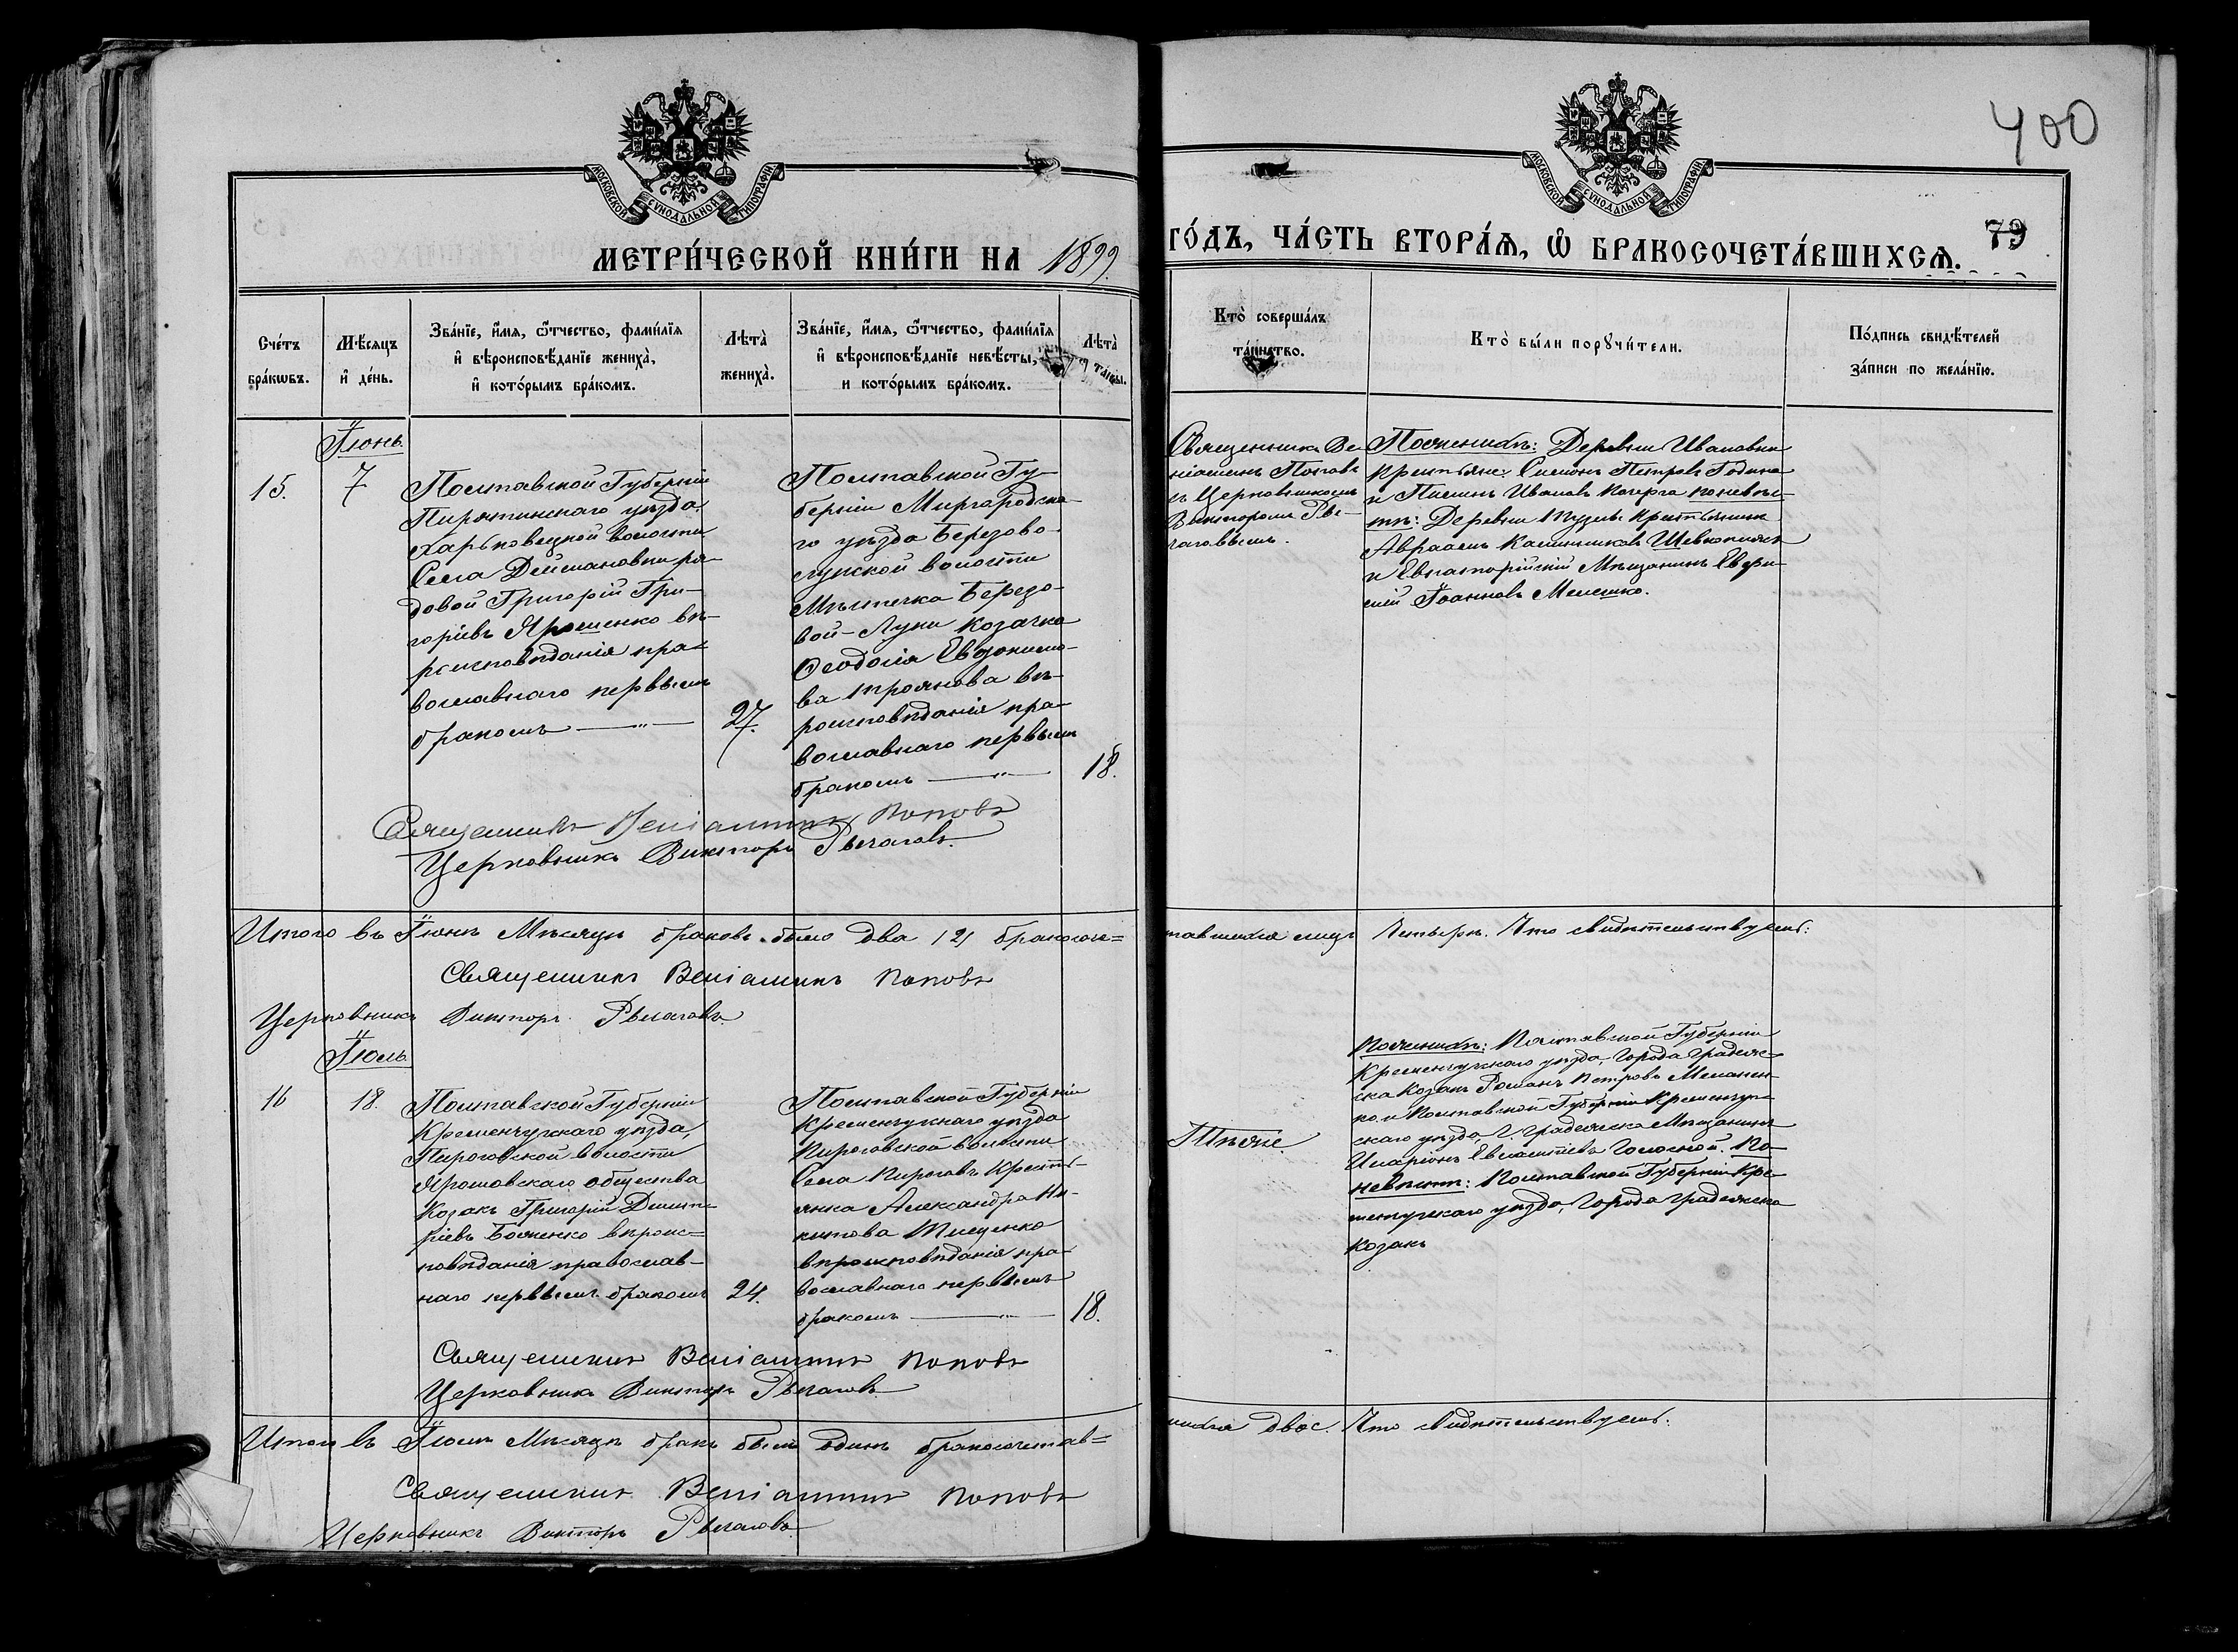 400
МОСКОВСКОЙ СѴНОДАЛЬНОЙ ТИПОГРАФІИ
МОСКОВСКОЙ СѴНОДАЛЬНОЙ ТИПОГРАФІИ
МЕТРИ́ЧЕСКОЙ КНИ́ГИ НА 1899.
ГО́ДЪ, ЧА́СТЬ ВТОРА́Ѧ, Ѡ БРАКОСОЧЕТА́ВШИХСѦ. 79
Сче́тъ
бра́кѡвъ.
Мѣ́сяцъ
и де́нь.
Зва́нїе, и́мѧ, ѻ҆́тчество, фами́лїѧ
и вѣроисповѣ́данїе жениха̀,
и кото́рымъ бра́комъ.
Лѣта̀
жениха̀.
Зва́нїе, и́мѧ, ѻ҆́тчество, фами́лїѧ
и вѣроисповѣ́данїе невѣ́сты,
и кото́рымъ бра́комъ.
Лѣта̀
Кто̀ соверша́лъ
та́инство.
Кто̀ бы́ли порꙋчи́тели.
По́дпись свидѣ́телей
за́писи по жела́нїю.
Іюнь.
15.
7
Полтавской Губерніи
Пирятинскаго уѣзда,
Харьковецкой волости
Села Деймановки ря-
довой Григорій Гри-
горіевъ Ярошенко вѣ-
роисповѣданія пра-
вославнаго первымъ
бракомъ
27.
Полтавской Гу-
берніи Миргородска-
го уѣзда Березово-
лукской волости
Мѣстечка Березо-
вой-Луки козачка
Ѳеодосія Евдокимо-
ва Троянова вѣ-
роисповѣданія пра-
вославнаго первымъ
бракомъ
18.
Священникъ Ве-
ніаминъ Поповъ
съ Церковникомъ
Викторомъ Ры-
чаговымъ.
По женихѣ: Деревни Ивановки
крестьяне Симонъ Петровъ Година
и Пименъ Ивановъ Кочерга по невѣс-
тѣ: Деревни Тузлы крестьянинъ
Авраамъ Калинниковъ Шевкоплясъ
и Евпаторійскій Мѣщанинъ Евфи-
мій Іоанновъ Мелешко.
Священникъ Веніаминъ Поповъ
Церковникъ Викторъ Рычаговъ.
Итого въ Іюнѣ Мѣсяцѣ браковъ было два /2/ бракосоче=
тавшихся лицъ Четыре. Что свидѣтельствуемъ:
Священникъ Веніаминъ Поповъ
Церковникъ Викторъ Рычаговъ.
Іюль
16
18.
Полтавской Губерніи
Кременчугскаго уѣзда,
Пироговской волости
Ярошовскаго общества
Козакъ Григорій Димит-
ріевъ Боженко вѣроис=
повѣданія православ-
наго первымъ бракомъ
24.
Полтавской Губерніи
Кременчугскаго уѣзда
Пироговской волости
Села Пироговъ Кресть-
янка Александра Ни-
китова Тищенко
вѣроисповѣданія пра-
вославнаго первымъ
бракомъ
18.
Тѣ же.
По женихѣ: Полтавской Губерніи
Кременчугскаго уѣзда, Города Градиж-
ска Козакъ Романъ Петровъ Меланен-
ко и Полтавской Губерніи Кременчуг-
скаго уѣзда, Г. Градижска Мѣщанинъ
Иларіонъ Евстафіевъ Голосной. По
невѣстѣ: Полтавской Губерніи Кре-
менчугскаго уѣзда, Города Градижска
Козакъ
Священникъ Веніаминъ Поповъ
Церковникъ Викторъ Рычаговъ
Итого въ Іюлѣ Мѣсяцѣ бракъ былъ одинъ бракосочетав=
шихся двое. Что свидѣтельствуемъ:
Священникъ Веніаминъ Поповъ
Церковникъ Викторъ Рычаговъ